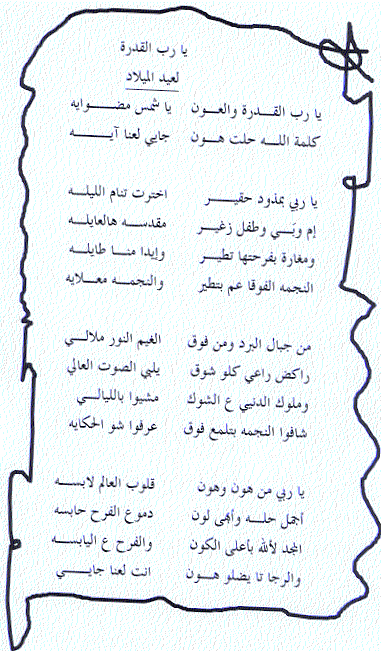 يا رب القدرة
لعيد الميلاد
يا رب القـدرة والعـون يا شمس مضـوايه
كلمة اللـه حلت هـون جايي لعنا آيـة
يا ربي بمذود حقيـر اخترت تنام الليلـه
إم وبَـي وطفل زغيـر مقدسـه هالعايلـه
ومغارة بفرحتها تطيـر وإيدا منـا طايلـه
النجمه الفوقا عم بتطير والنجمـه معـلايه
من جبال البرد ومن فوق الغيم النور ملالـي
راكض راعي كلو شوق يلبي الصوت العالي
وملوك الدنيي ع الشوك مشيوا بالليالـي
شافوا النجمه بتلمع فوق عرفوا شو الحكايه
يا ربي من هون وهون قلوب العالم لابسـه
أجمل حلـه وأبهى لون دموع الفرح حابسه
المجد لألله بأعلى الكون والفرح ع اليابسـه
والرجا تا يضلو هـون انت لعنا جايـي